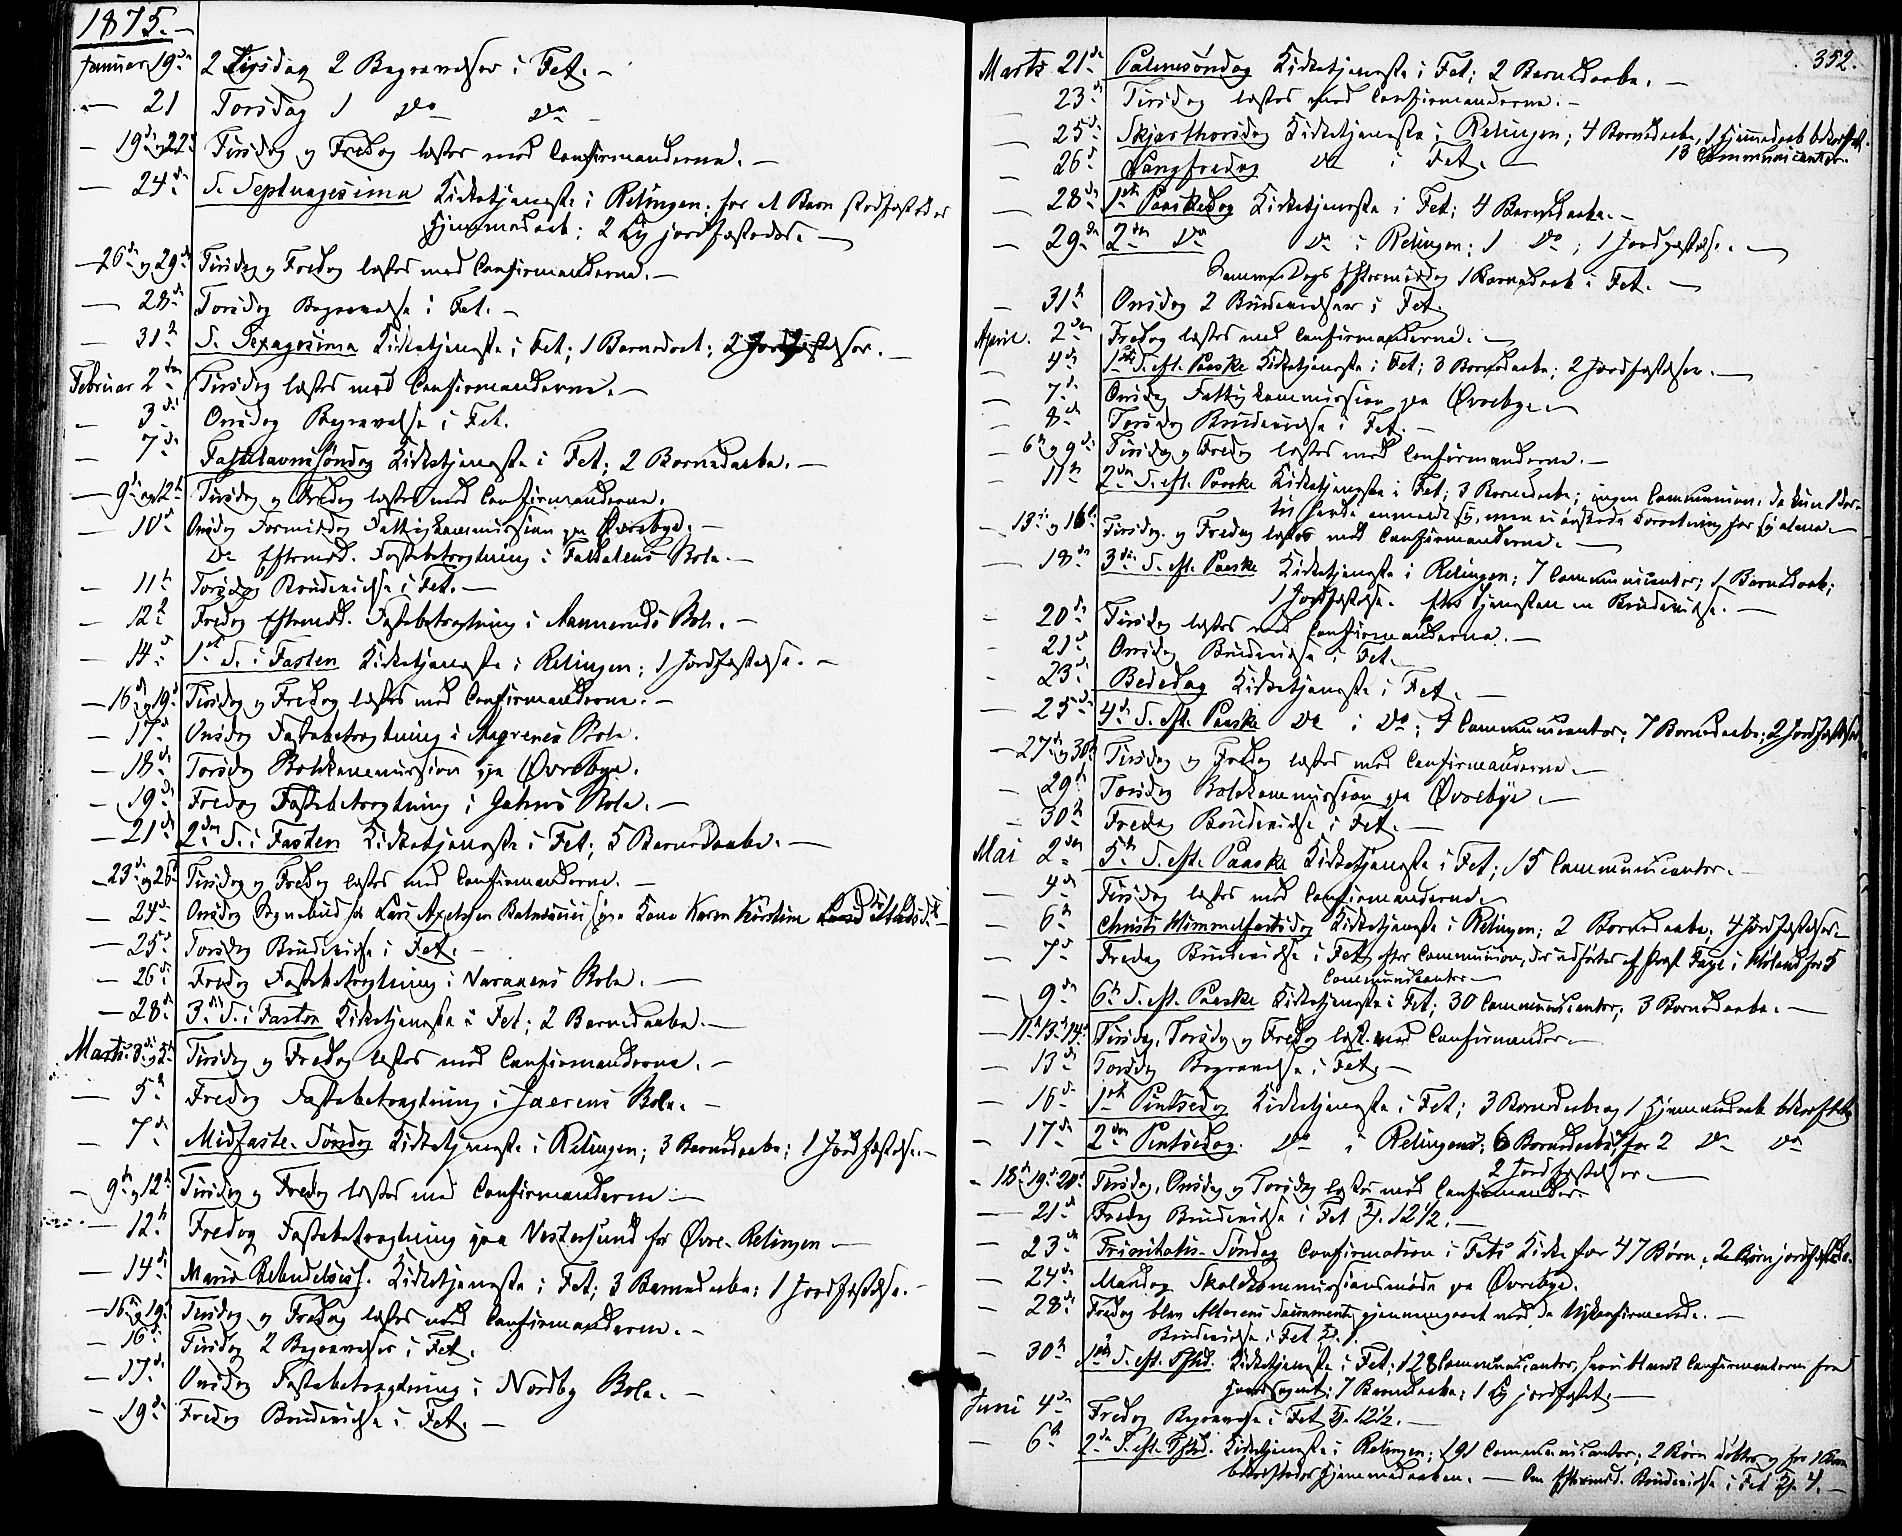 1875.
Januar 19de 2 Tirsdag 2 Begravelser i Fet. —
— 21 Torsdag 1 do do —
— 19de og 22de Tirsdag og Fredag læstes med Confirmanderne. —
— 24de S. Septuagesima Kirketjeneste i Relingen; for et Barn stadfæstedes
Hjemmedaab; 2 Lig jordfæstedes. —
— 26de og 29de Tirsdag og Fredag læstes med Confirmanderne. —
— 28de Torsdag Begravelse i Fet. —
— 31te S. Sexagesima Kirketjeneste i Fet; 1 Barnedaab; 2 Jordfæstelser. —
Februar 2den Tirsdag læstes med Confirmanderne. —
— 3die Onsdag Begravelse i Fet.
— 7de Fastelavnssøndag Kirketjeneste i Fet; 2 Barnedaabe. —
— 9de og 12te Tirsdag og Fredag læstes med Confirmanderne.
— 10de Onsdag Formiddag Fattigkommission paa Øvrebye. —
do Eftermd. Fastebetragtning i Faldalens Skole. —
— 11te Torsdag Brudevielse i Fet. —
— 12te Fredag Eftermd. Fastebetragtning i Nannerud's Skole. —
— 14de 1ste S. i Fasten Kirketjeneste i Relingen; 1 Jordfæstelse. —
— 16de og 19de Tirsdag og Fredag læstes med Confirmanderne. —
— 17de Onsdag Fastebetragtning i Skole.
— 18de Torsdag Skolekommission paa Øvrebye.
— 19de Fredag Fastebetragtning i Skole. —
— 21de 2den S. i Fasten Kirketjeneste i Fet; 5 Barnedaabe. —
— 23de og 26de Tirsdag og Fredag læstes med Confirmanderne. —
— 24de Onsdag Sognebud Karen Kirstine
— 25de Torsdag Brudevielse i Fet. —
— 26de Fredag Fastebetragtning i Skole. —
— 28de 3die S. i Fasten Kirketjeneste i Fet; 2 Barnedaabe. —
Marts 3die og 5te Tirsdag og Fredag læstes med Confirmanderne. —
— 5te Fredag Fastebetragtning i Jaerens Skole. —
— 7de Midfaste-Søndag Kirketjeneste i Relingen; 3 Barnedaabe; 1 Jordfæstelse. —
— 9de og 12te Tirsdag og Fredag læstes med Confirmanderne —
— 12te Fredag Fastebetragtning paa Vestersund for Øvre-Relingen —
— 14de Maria Bebudelsesf. Kirketjeneste i Fet; 3 Barnedaabe; 1 Jordfæstelse. —
— 16de og 19de Tirsdag og Fredag læstes med Confirmanderne. —
— 16de Tirsdag 2 Begravelser i Fet.
— 17de Onsdag Fastebetragtning i Nordby Skole. —
— 19de Fredag Brudevielse i Fet. —
352.
Marts 21de Palmesøndag Kirketjeneste i Fet; 2 Barnedaabe. —
— 23de Tirsdag læstes med Confirmanderne. —
— 25de Skjærthorsdag Kirketjeneste i Relingen; 4 Barnedaabe, 1 Hjemmedaab bekræftet.
13 Communicanter.
— 26de Langfredag do i Fet. —
— 28de 1ste Paaskedag Kirketjeneste i Fet; 4 Barnedaabe. —
— 29de 2den do do i Relingen; 1 do; 1 Jordfæstelse. —
Samme Dags Eftermiddag 1 Barnedaab i Fet. —
— 31te Onsdag 2 Brudevielser i Fet
April 2den Fredag læstes med Confirmanderne. —
— 4de 1ste S. eft. Paaske Kirketjeneste i Fet; 3 Barnedaabe; 2 Jordfæstelser. —
— 7de Onsdag Fattigkommission paa Øvrebye —
— 8de Torsdag Brudevielse i Fet. —
— 6te og 9de Tirsdag og Fredag læstes med Confirmanderne. —
— 11te 2den S. eft. Paaske Kirketjeneste i Fet; 3 Barnedaabe; ingen Communion, da kun 1
havde anmeldt sig, men ei ønskede Forretning for sig alene —
— 13de og 16de Tirsdag og Fredag læstes med Confirmanderne. —
— 18de 3die S. eft. Paaske Kirketjeneste i Relingen; 7 Communicanter; 1 Barnedaab;
1 Jordfæstelse. Efter Tjenesten en Brudevielse. —
— 20de Tirsdag læstes med Confirmanderne. —
— 21de Onsdag Brudevielse i Fet.
— 23de Bededag Kirketjeneste i Fet. —
— 25de 4de S. eft. Paaske do i do; 9 Communicanter; 7 Barnedaabe; 2 Jordfæstelser
— 27de og 30te Tirsdag og Fredag læstes med Confirmanderne —
— 29de Torsdag Skolekommission paa Øvrebye. —
— 30te Fredag Brudevielse i Fet. —
Mai 2den 5te S. eft. Paaske Kirketjeneste i Fet; 15 Communicanter. —
— 4de Tirsdag læstes med Confirmanderne. —
— 6te Christi Himmelfartsdag Kirketjeneste i Relingen; 2 Barnedaabe; 4 Jordfæstelser. —
— 7de Fredag Brudevielse i Fet efter Communion, der udførtes af Præst Faye i Høland for 5
Communicanter —
— 9de 6te S. eft. Paaske Kirketjeneste i Fet; 30 Communicanter; 3 Barnedaabe. —
— 11te 13de 14de Tirsdag, Torsdag og Fredag læst. med Confirmander. —
— 13de Torsdag Begravelse i Fet. —
— 16de 1ste Pintsedag Kirketjeneste i Fet; 3 Barnedaabe og 1 Hjemmedaab bekræftet
— 17de 2den Pintsedag. do i Relingen; 6 Barnedaabe, for 2 do do
2 Jordfæstelser —
— 18de 19de 20de Tirsdag, Onsdag og Torsdag læstes med Confirmander —
— 21de Fredag Brudevielse i Fet Kl. 12½. —
— 23de Trinitatis-Søndag Confirmation i Fets Kirke for 47 Børn; 2 Børn jordfæstede.
— 24de Mandag Skolekommissionsmøde paa Øvrebye.
— 28de Fredag blev Alterens Sacramente gjennemgaaet med de Nykonfirmerede. —
Brudevielse i Fet Kl. 1.
— 30te 1ste S. eft. Tftd. Kirketjeneste i Fet; 128 Communicanter, heriblandt Confirmanterne fra
Hovedsognet; 7 Barnedaabe; 1 Lig jordfæstet. —
Juni 4de Fredag Begravelse i Fet Kl. 12½. —
— 6te 2den S. eft. Tftd. Kirketjeneste i Relingen; 191 Communicanter; 2 Børn døbtes og for 1 Barn
bekræftedes Hjemmedaaben. — Om Eftermd. Brudevielse i Fet Kl. 4. —